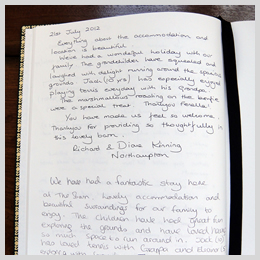 21st July 2012
Everything about the accommodation and
location is beautiful.
We've had a wonderful holiday with our
family. The grandchildren have squealed and
laughed with delight running around the
grounds. Jack (10 yrs) has especially enjoyed
playing tennis everyday with his Grandpa.
The marshmallow-roasting on the bonfire
were a special treat. Thankyou
You have made us feel so welcome.
Thankyou for providing so thoughtfully in
this lovely barn.
Richard & Diane
Northampton
We have had a fantastic stay here
at The Barn, lovely accommodation and
beautiful surroundings for our family to
enjoy. The children have had great fun
exploring the grounds and have loved having
so much space to run around in.
has loved tennis with Grandpa and